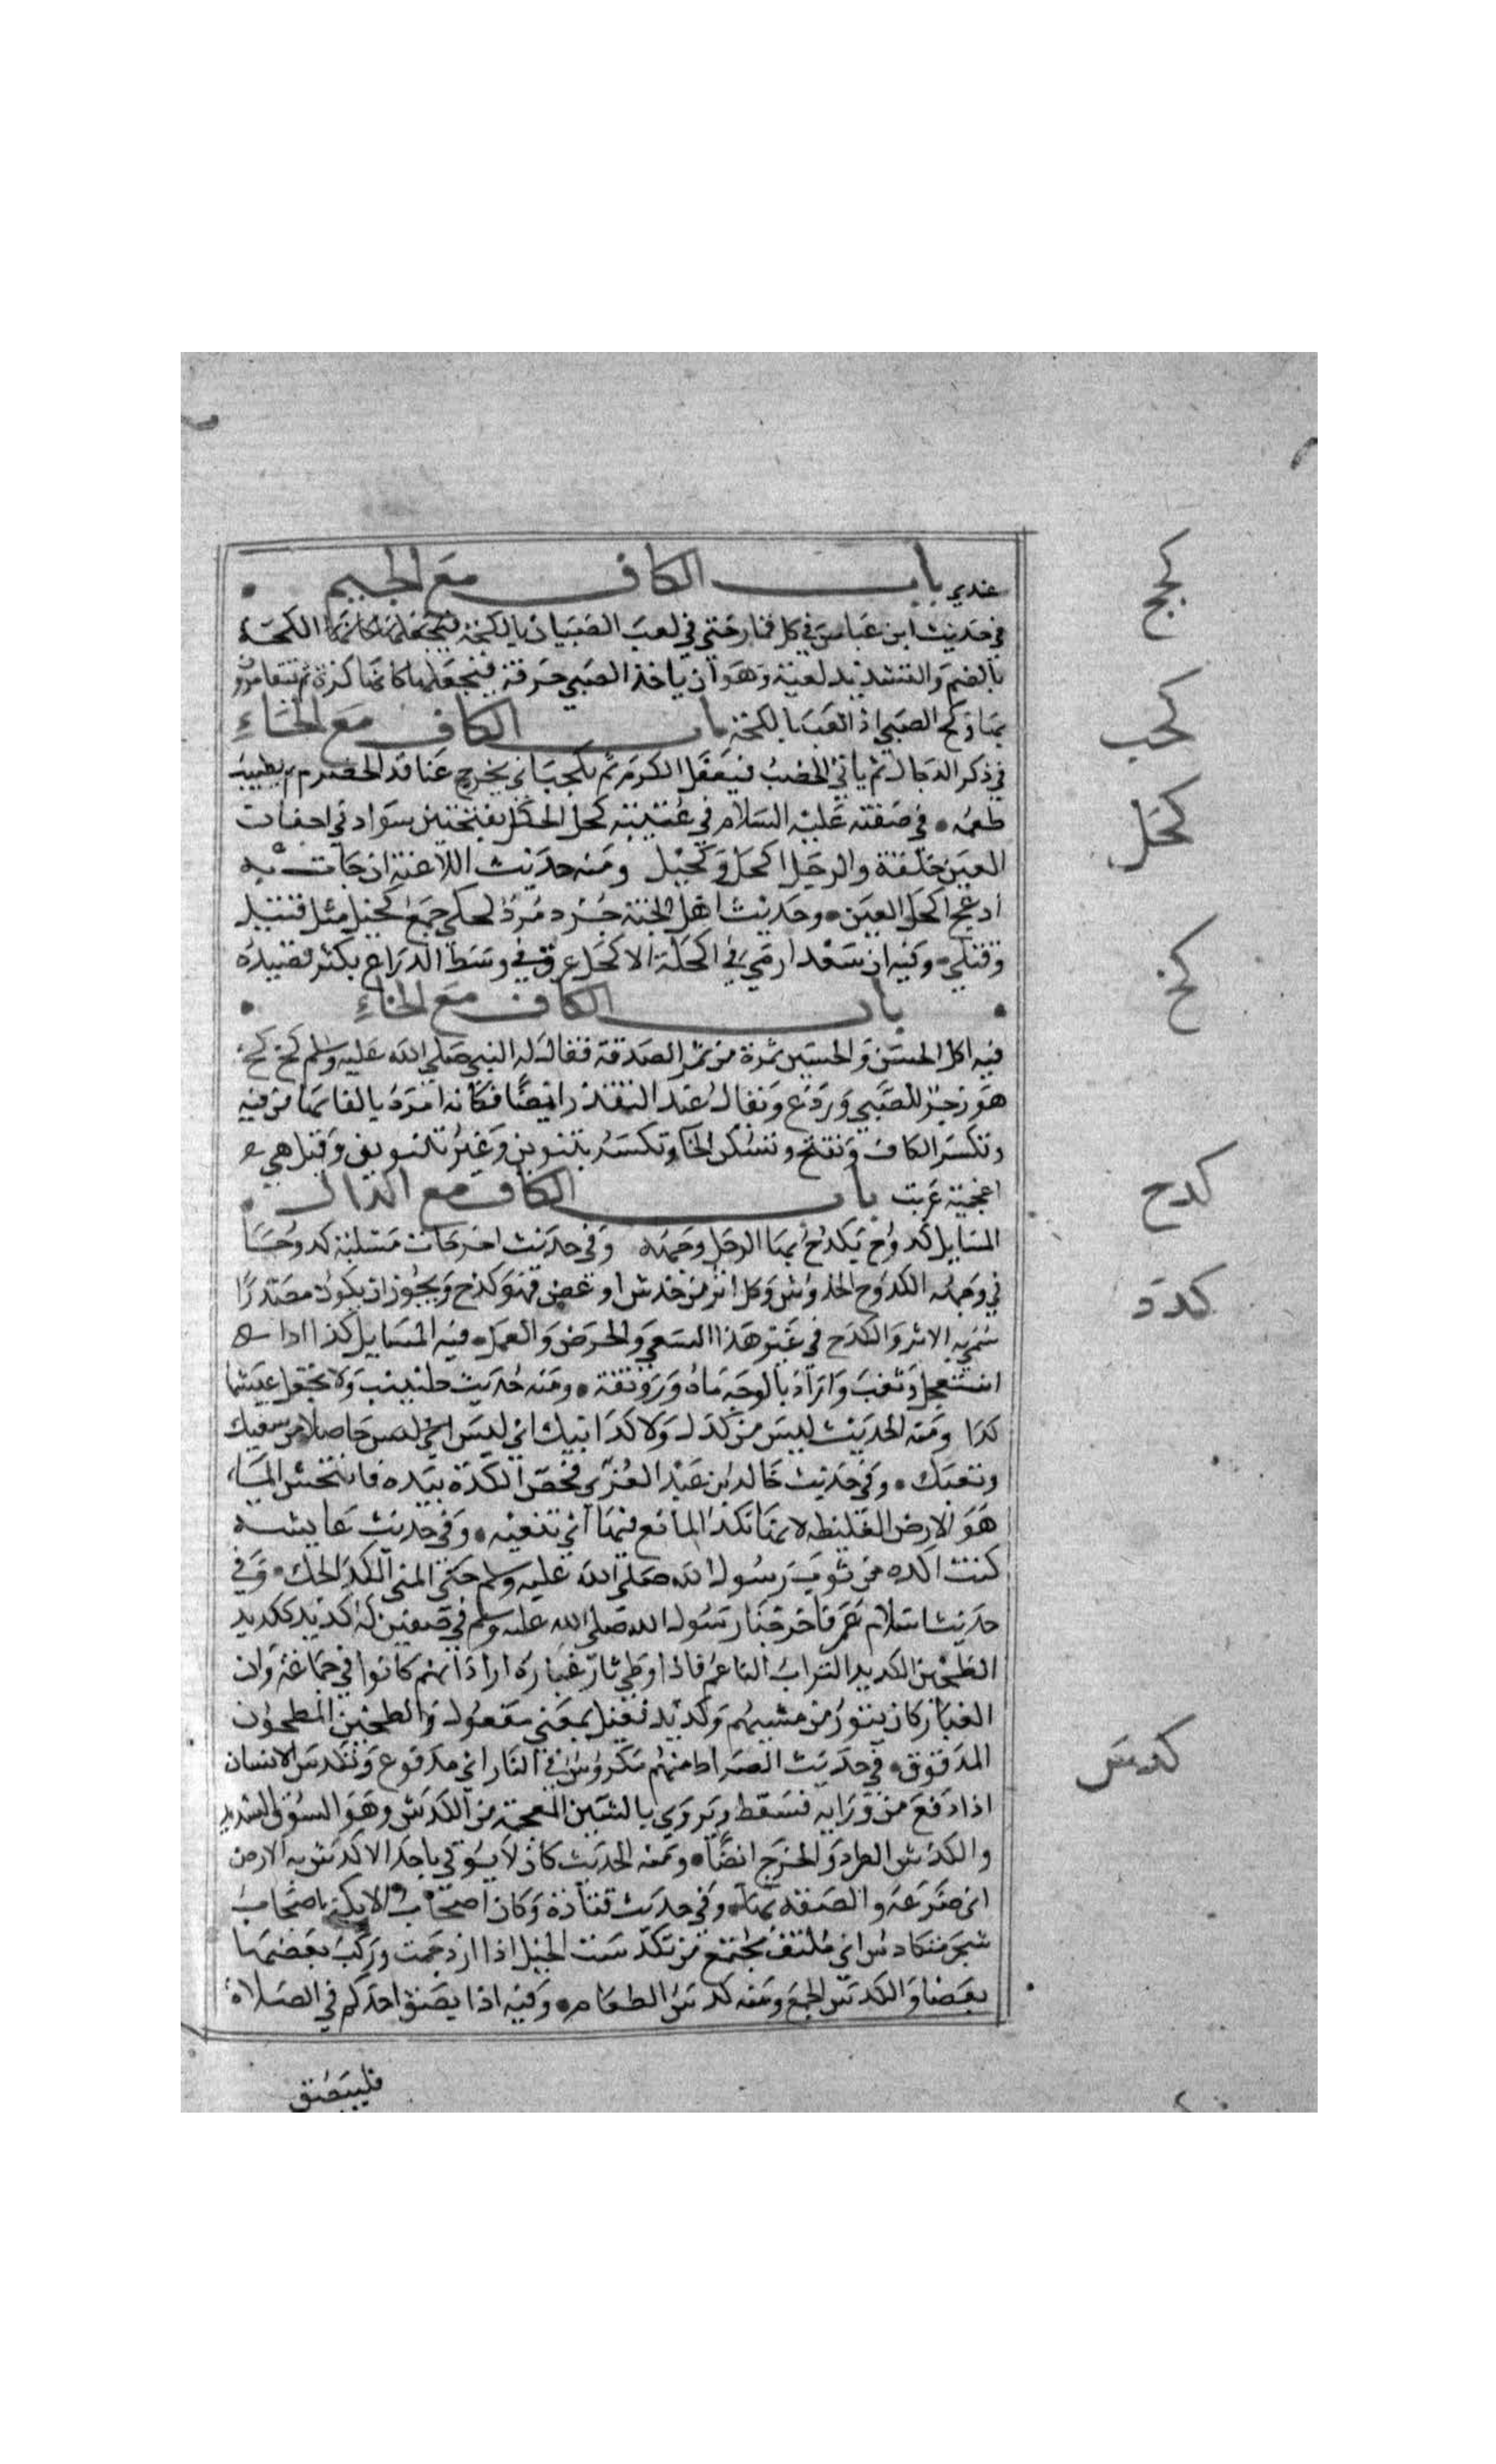 عندي باب الكاف مع الجيم
كجج
في حديث ابن عباس في كل قمار حتى في لعب الصبيان بالكجة الكجة
بالضم والتشديد لعبة وهو ان ياخذ الصبي خرقة فيجعلها كانها كرة ثم يتقامرون
كحب
بها وكج الصبي اذا لعب بالكجة باب الكاف مع الحاء
في ذكر الدجال ثم ياتي الخصب فيعقل الكرم ثم يكحب اي يخرج عناقد الحصرم ثم يطيب
كحل
طعمه في صفته عليه السلام في عينيه كحل الكحل بفتحتين سواد في اجفان
العين خلقة والرجل اكحل وكحيل ومنه حديث الملاعنة ان جات به
ادعج اكحل العين وحديث اهل الجنة جرد مرد كحلى جمع كحيل مثل قتيل
كخ
وقتلى وفيه ان سعدا رمي في اكحله الاكحل عرق في وسط الذراع يكثر فصيده
باب الكاف مع الخاء
فيه اكل الحسن والحسين تمرة من تمر الصدقة فقال له النبي صلى الله عليه وسلم كخ كخ
هو زجر للصبي وردع ويقال عند التقذر ايضا فكانه امره بالقايها من فيه
وتكسر الكاف وتفتح وتسكن الخا وتكسر بتنوين وغير تنوين وقيل هي
كدح
اعجمية عربت باب الكاف مع الدال
المسايل كدوح يكدح بها الرجل وجهه وفي حديث اخر جات مسلته كدوحا
كدد
في وجهه الكدوح الخدوش وكل اثر من خدش او عض فهو كدح ويجوز ان يكون مصدرا
سمي به الاثر والكدح في غير هذا السعي والحرص والعمل فيه المسايل كد
استعجل وتعب واراد بالوجه ماه ورونقه ومنه حديث جليبيب ولا تجعل عيشها
كدا ومنه الحديث ليس من كدك ولا كد ابيك اي ليس حاصلا من سعيك
وتعبك وفي حديث خالد بن عبد العزى فحص الكدة بيده فانبجس الماء
هو الارض الغليظه لانها تكد الماشي فيها اي تتعبه وفي حديث عايشه
كنت اكده من ثوب رسول الله صلى الله عليه وسلم حتى المني الكد الحك وفي
حديث اسلام عمر فاخرجنا رسول الله صلى الله عليه وسلم في صفين له كديد ككديد
الطحين الكديد التراب الناعم فاذا وطي ثار غباره اراد انهم كانوا في جماعة وان
الغبار كان يثور من مشيهم وكديد فعيل بمعنى مفعول والطحين المطحون
كدس
المدقوق في حديث الصراط منهم مكدوس في النار اي مدفوع وتكدس الانسان
اذا دفع من ورايه فسقط ويروي بالشين المعجمة من الكدش وهو السوق الشديد
والكدش الطرد والجرح ايضا ومنه الحديث كان لا يوتى باحد الا كدس به الارض
اي صرعه والصقه بها وفي حديث قتادة وكان اصحاب الايكة اصحاب
شجر متكادس اي ملتف مجتمع من تكدست الخيل اذا ازدحمت وركب بعضها
بعضا والكدس الجمع ومنه كدس الطعام وفيه اذا بصق احدكم في الصلاة
فليبصق